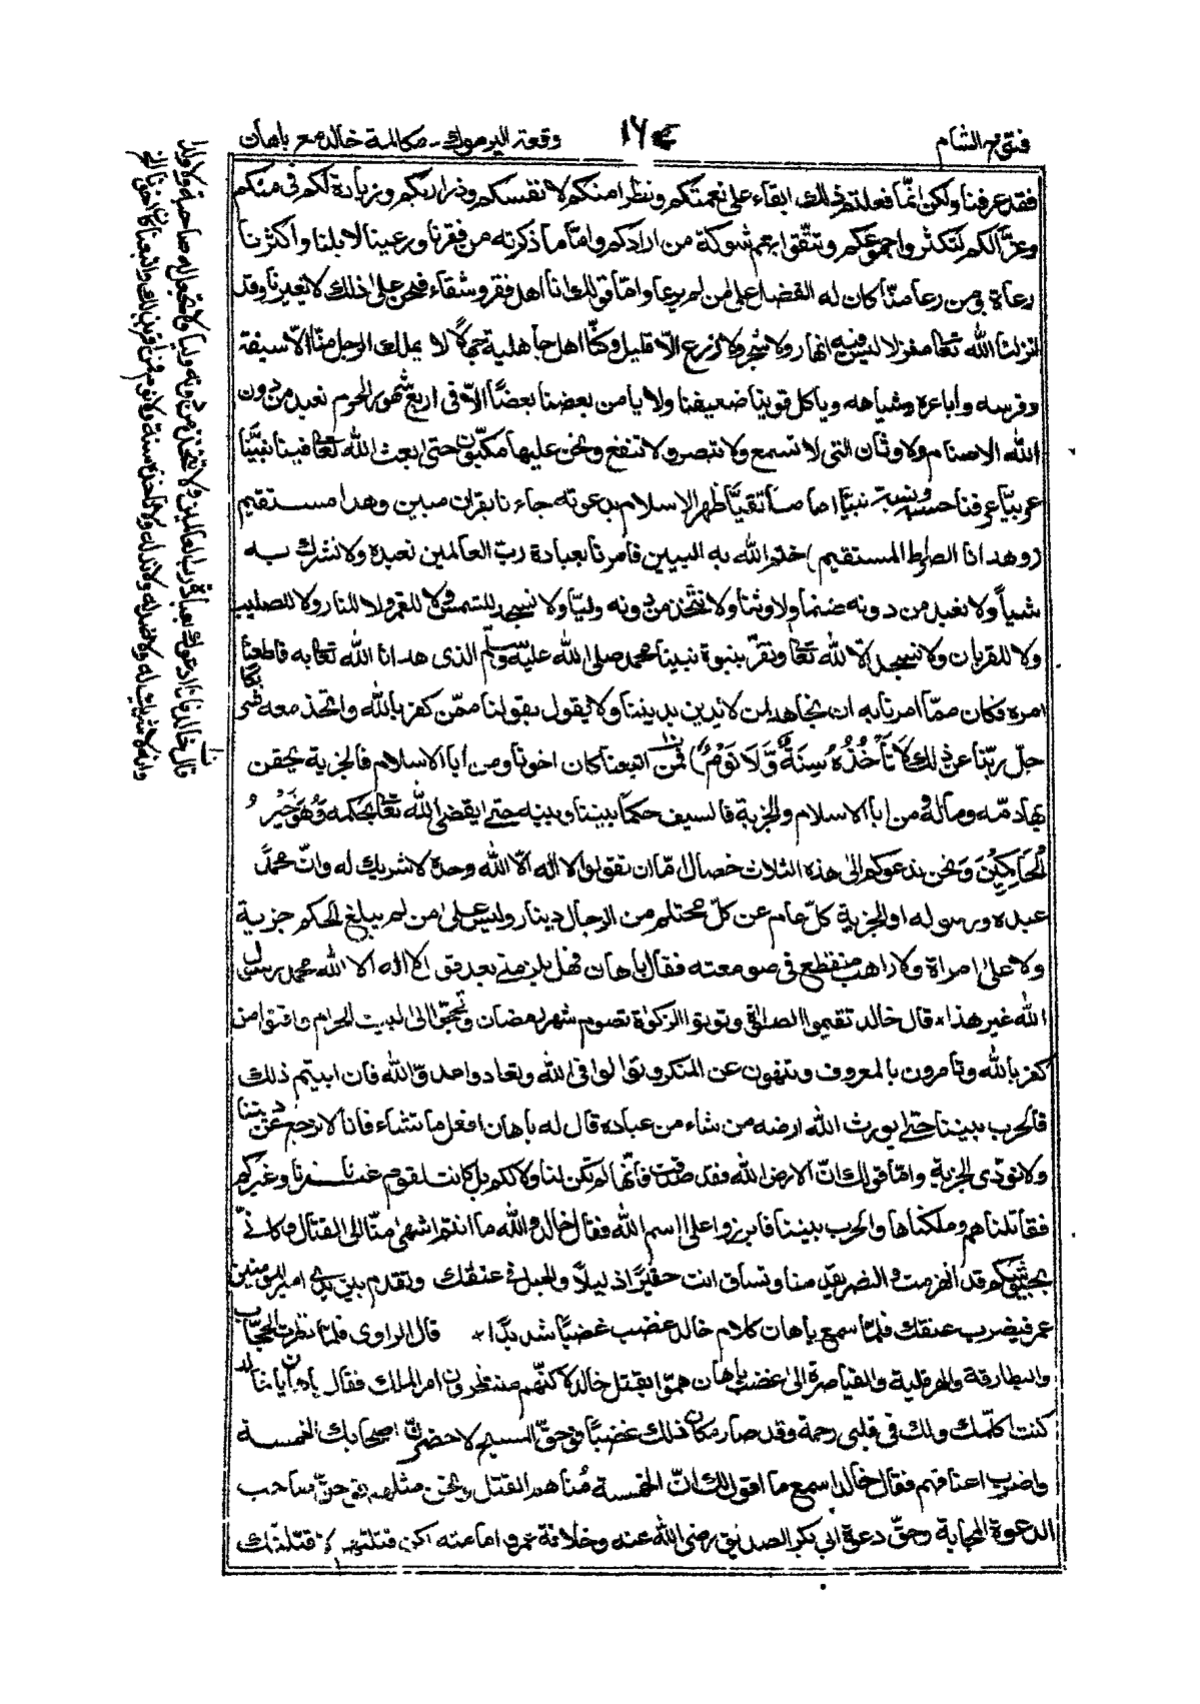 فتوح الشام
وقعة اليرموك - مكالمة خالد مع باهان
فقد عرفنا ولكن انّما فعلتم ذلك ابقاء على نعمتكم ونظرا منكم لانفسكم وذراريكم وزيادة لكم فى منكم
وعزّا لكم لتكثر واجموعكم وتتّقوا بهم شوكة من ارادكم وامّا ما ذكرته من فقرنا ورعينا الابلنا واكثرنا
رعاة ومن رعا منّا كان له الفضل على من لم يرعا وامّا قولك انا اهل فقر وشقاء فنحن على ذلك لا تعيرنا وقد
انزلنا الله تعا منزلا ليس فيه انهار ولا شجر ولا زرع الّا قليل وكنّا اهل جاهلية جهالًا لا يملك الرجل منّا الّا سيفه
وفرسه واباعره وشياهه وياكل قوينا ضعيفنا ولا يامن بعضنا بعضًا الّا فى اربع شهور الحرم نعبد من دون
الله الاصنام ولاوثان التى لا تسمع ولا تبصر ولا تنفع ونحن عليها مكبّون حتى ابعث الله تعا فينا نبيًّا
عربيًّا عرفنا حسبه ونسبه نبيّا اماما تقيًّا ظهر الاسلام بدعوته جاءنا بقران مبين وهدا مستقيم
(وهدانا الصراط المستقيم) ختم الله به النبيين فامرنا بعبادة ربّ العالمين نعبده ولا نشرك به
شيأً ولا نعبد من دونه صنما ولا وثنا ولا نتّخذ من دونه وليّا ولا نسجد للشمس ولا للقمر ولا للنار ولا للصليب
ولا للقربان ولا نسجد الّا لله تعا ونقرّ بنبوة نبينا محمد صلى الله عليه وسلّم الذى هدانا الله تعا به فاطعنا
امره فكان ممّا امرنا به ان نجاهد من لا يدين بديننا ولا يقول بقولنا ممّن كفر بالله واتّخذ معه شر
جلّ ربّنا عن ذلك لَا تَأْخُذُهُ سِنَةٌ وَّلَا نَوْمٌ) فمن اتبعنا كان اخونا ومن ابا الاسلام فالجزية يحقن
بها دمّه وماله ومن ابا الاسلام والجزية فالسيف حكما بيننا وبينه حتى يقضى الله تعا بحكمه وَهُوَ خَيْرُ
الْحَاكِمِيْنَ ونحن ندعوكم الى هذه الثلاث خصال امّا ان تقولوا لا اله الّا الله وحده لا شريك له وانّ محمدً
عبده ورسوله او الجزية كلّ عام عن كلّ محتلم من الرجال دينار وليس على من لم يبلغ الحكم جزية
ولا على امراة ولا راهب منقطع فى صومعته فقال باهان فهل يلزمنى بعد قو لا اله الا الله محمد رسول
الله غير هذا * قال خالد تقيموا الصلوة وتوتوا الزكوة تصوم شهر رمضان وتحجّوا الى البيت الحرام واقتوا من
كفر بالله وتأمرون بالمعروف وتنهون عن المنكر وتوالوا فى الله وتعادوا عدوّ الله فان ابيتم ذلك
فالحرب بيننا حتى يورث الله ارضه من شاء من عباده قال له باهان افعل ما تشاء فانا لا نرجع عن ديننا
ولا نودّى الجزية وامّا قولك انّ الارض الله فقد صدقت فانّها لم تكن لنا ولا لكم بل كانت لقوم غيرنا وغيركم
فقاتلناهم وملكناها والحرب بيننا فابرزوا على اسم الله فقال خالد والله ما انتم اشهى منّا الى القتال وكانّى
بجيشكم قد انهزمت و النصر يقدمنا وتساق انت حقيرًا ذليلًا والحبل فى عنقك وتقدم بين يدى امير المومنين
عمر فيضرب عنقك فلمّا سمع باهان كلام خالد غضب غضبًا شديدًا * قال الراوى فلمّا نظرت الحجّاب
والبطارقة والهرقلية والقياصرة الى غضب باهان همّوا بقتل خالد لاكنّهم منتظرون امر الملك فقال باهان يا خالد
كنت اكلّمك ولك فى قلبى رحمة وقد صار مكان ذلك غضبًا فوحقّ المسيح لاحضرنّ اصحابك الخمسة
واضرب اعناقهم فقال خالد اسمع ما اقول لك انّ الخمسة منا هد القتل ونحن مثلهم فوحقّ صاحب
الدعوة المجابة وحقّ دعوة ابى بكر الصديق رضى الله عنه وخلافة عمر وامامته لان قتلتهم لاقتلنّك
قال خالد فانا ادعوك بعبادة رب العالمين ولا تتخذ من دونه وليا ولا تجعل له صاحبة ولا ولدا